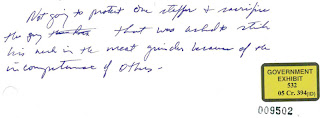 Not going to protect one staffer & sacrifice
the guy this Pres that was asked to stick
his neck in the meat grinder because of the
incompetence of others.
GOVERNMENT
EXHIBIT
532
05 Cr. 394 (ID)
009502